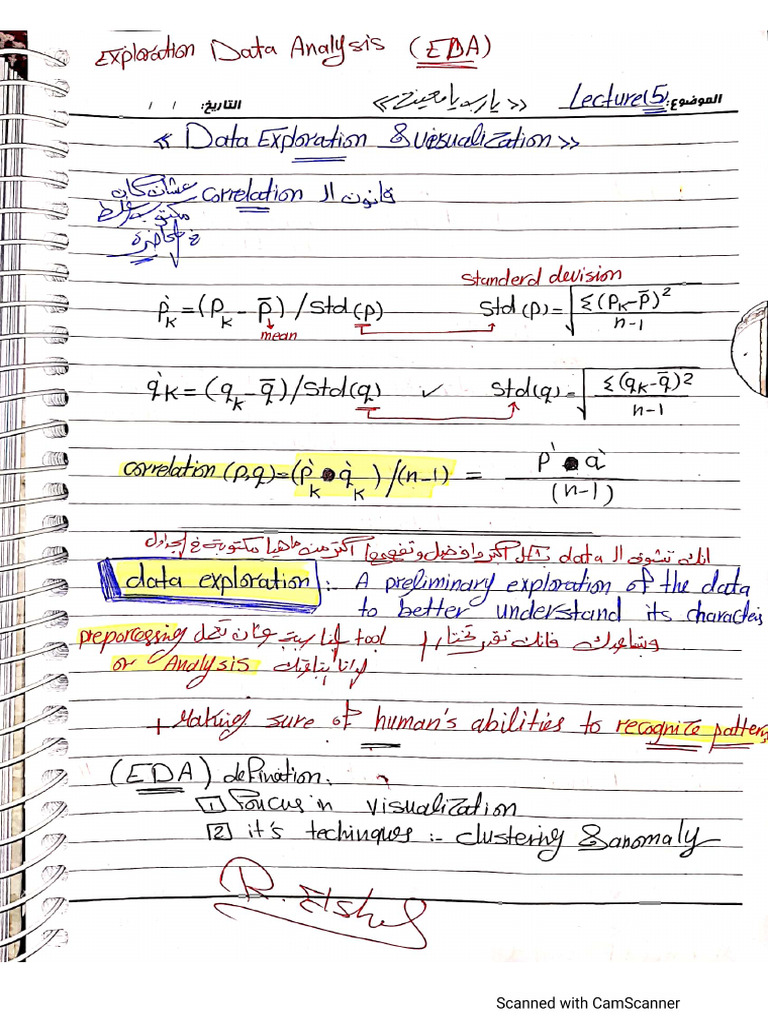 Exploration Data Analysis (EDA)
الموضوع: Lecture(5) << يارب يا معين >> التاريخ: / /
<< Data Exploration & Visualization >>
قانون ال correlation عشان كان
مكتوب غلط
في المحاضرة
Standerd devision
p̀k = (pk - p̄) / Std(p) Std(p) = √Σ(pk-p̄)² / n-1
mean
q̀k = (qk - q̄) / Std(q) ✓ Std(q) = √Σ(qk-q̄)² / n-1
correlation (p,q) = (p̀k • q̀k) / (n-1) = p̀ • q̀ / (n-1)
انك تشوف ال data بشكل اكبر وافضل وتفهمها اكتر من ماهيا مكتوبة في الجداول
data exploration :- A preliminary exploration of the data
to better understand its characteris
وبتساعدك فانك تقدر تختار tool المناسبة عشان تعمل preporcessing
or Analysis للداتا بتاعتك
+ Making sure of human's abilities to recognize pattern
(EDA) defination:
1 Foucus in visualization
2 it's techinques :- clustering & anomaly
R. Elshe
Scanned with CamScanner